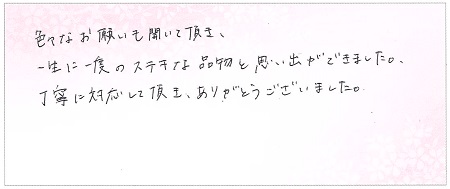 色々なお願いも聞いて頂き、
一生に一度のステキな品物と思い出ができました。
丁寧に対応して頂き、ありがとうございました。